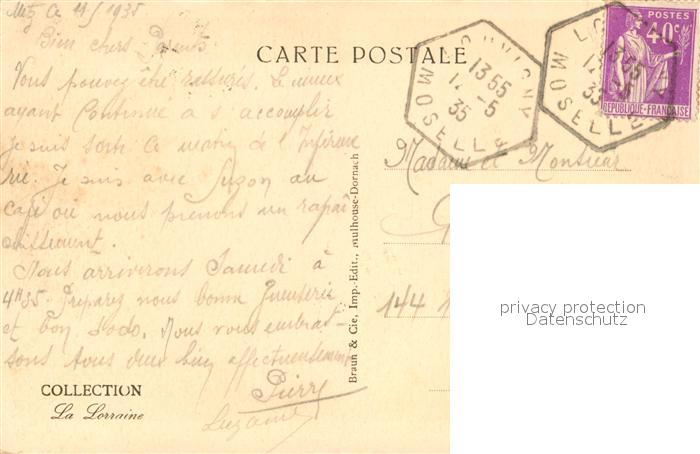 Metz Ce 11/5 1935
Bien chers Parents
Vous pouvez être rassurés. Le mieux
ayant continué à s'accomplir
je suis sorti ce matin de l'Infirme
rie. Je suis avec Suzon au
café où nous prenons un rafraî
chissement.
Nous arriverons Samedi à
4H35. Préparez nous bonne
et bon dodo. Nous vous embras
sons tous deux bien affectueusement
Pierre
Suzanne
COLLECTION
La Lorraine
CARTE POSTALE
Braun & Cie, Imp.-Edit., Mulhouse-Dornach
13 55
-5
35
MOSELLE
13 55
-5
35
MOSELLE
POSTES
40c
REPUBLIQUE-FRANÇAISE
Madame et Monsieur
144
privacy protection
Datenschutz